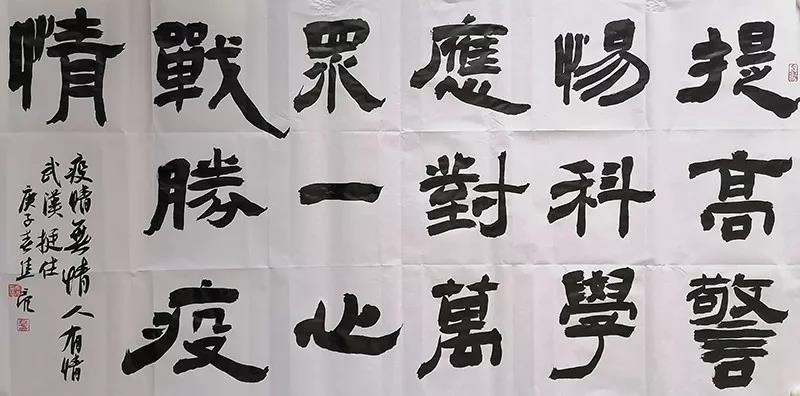 提高警
惕科學
應對萬
眾一心
戰勝疫
情
疫情無情人有情
武漢挺住
庚子春